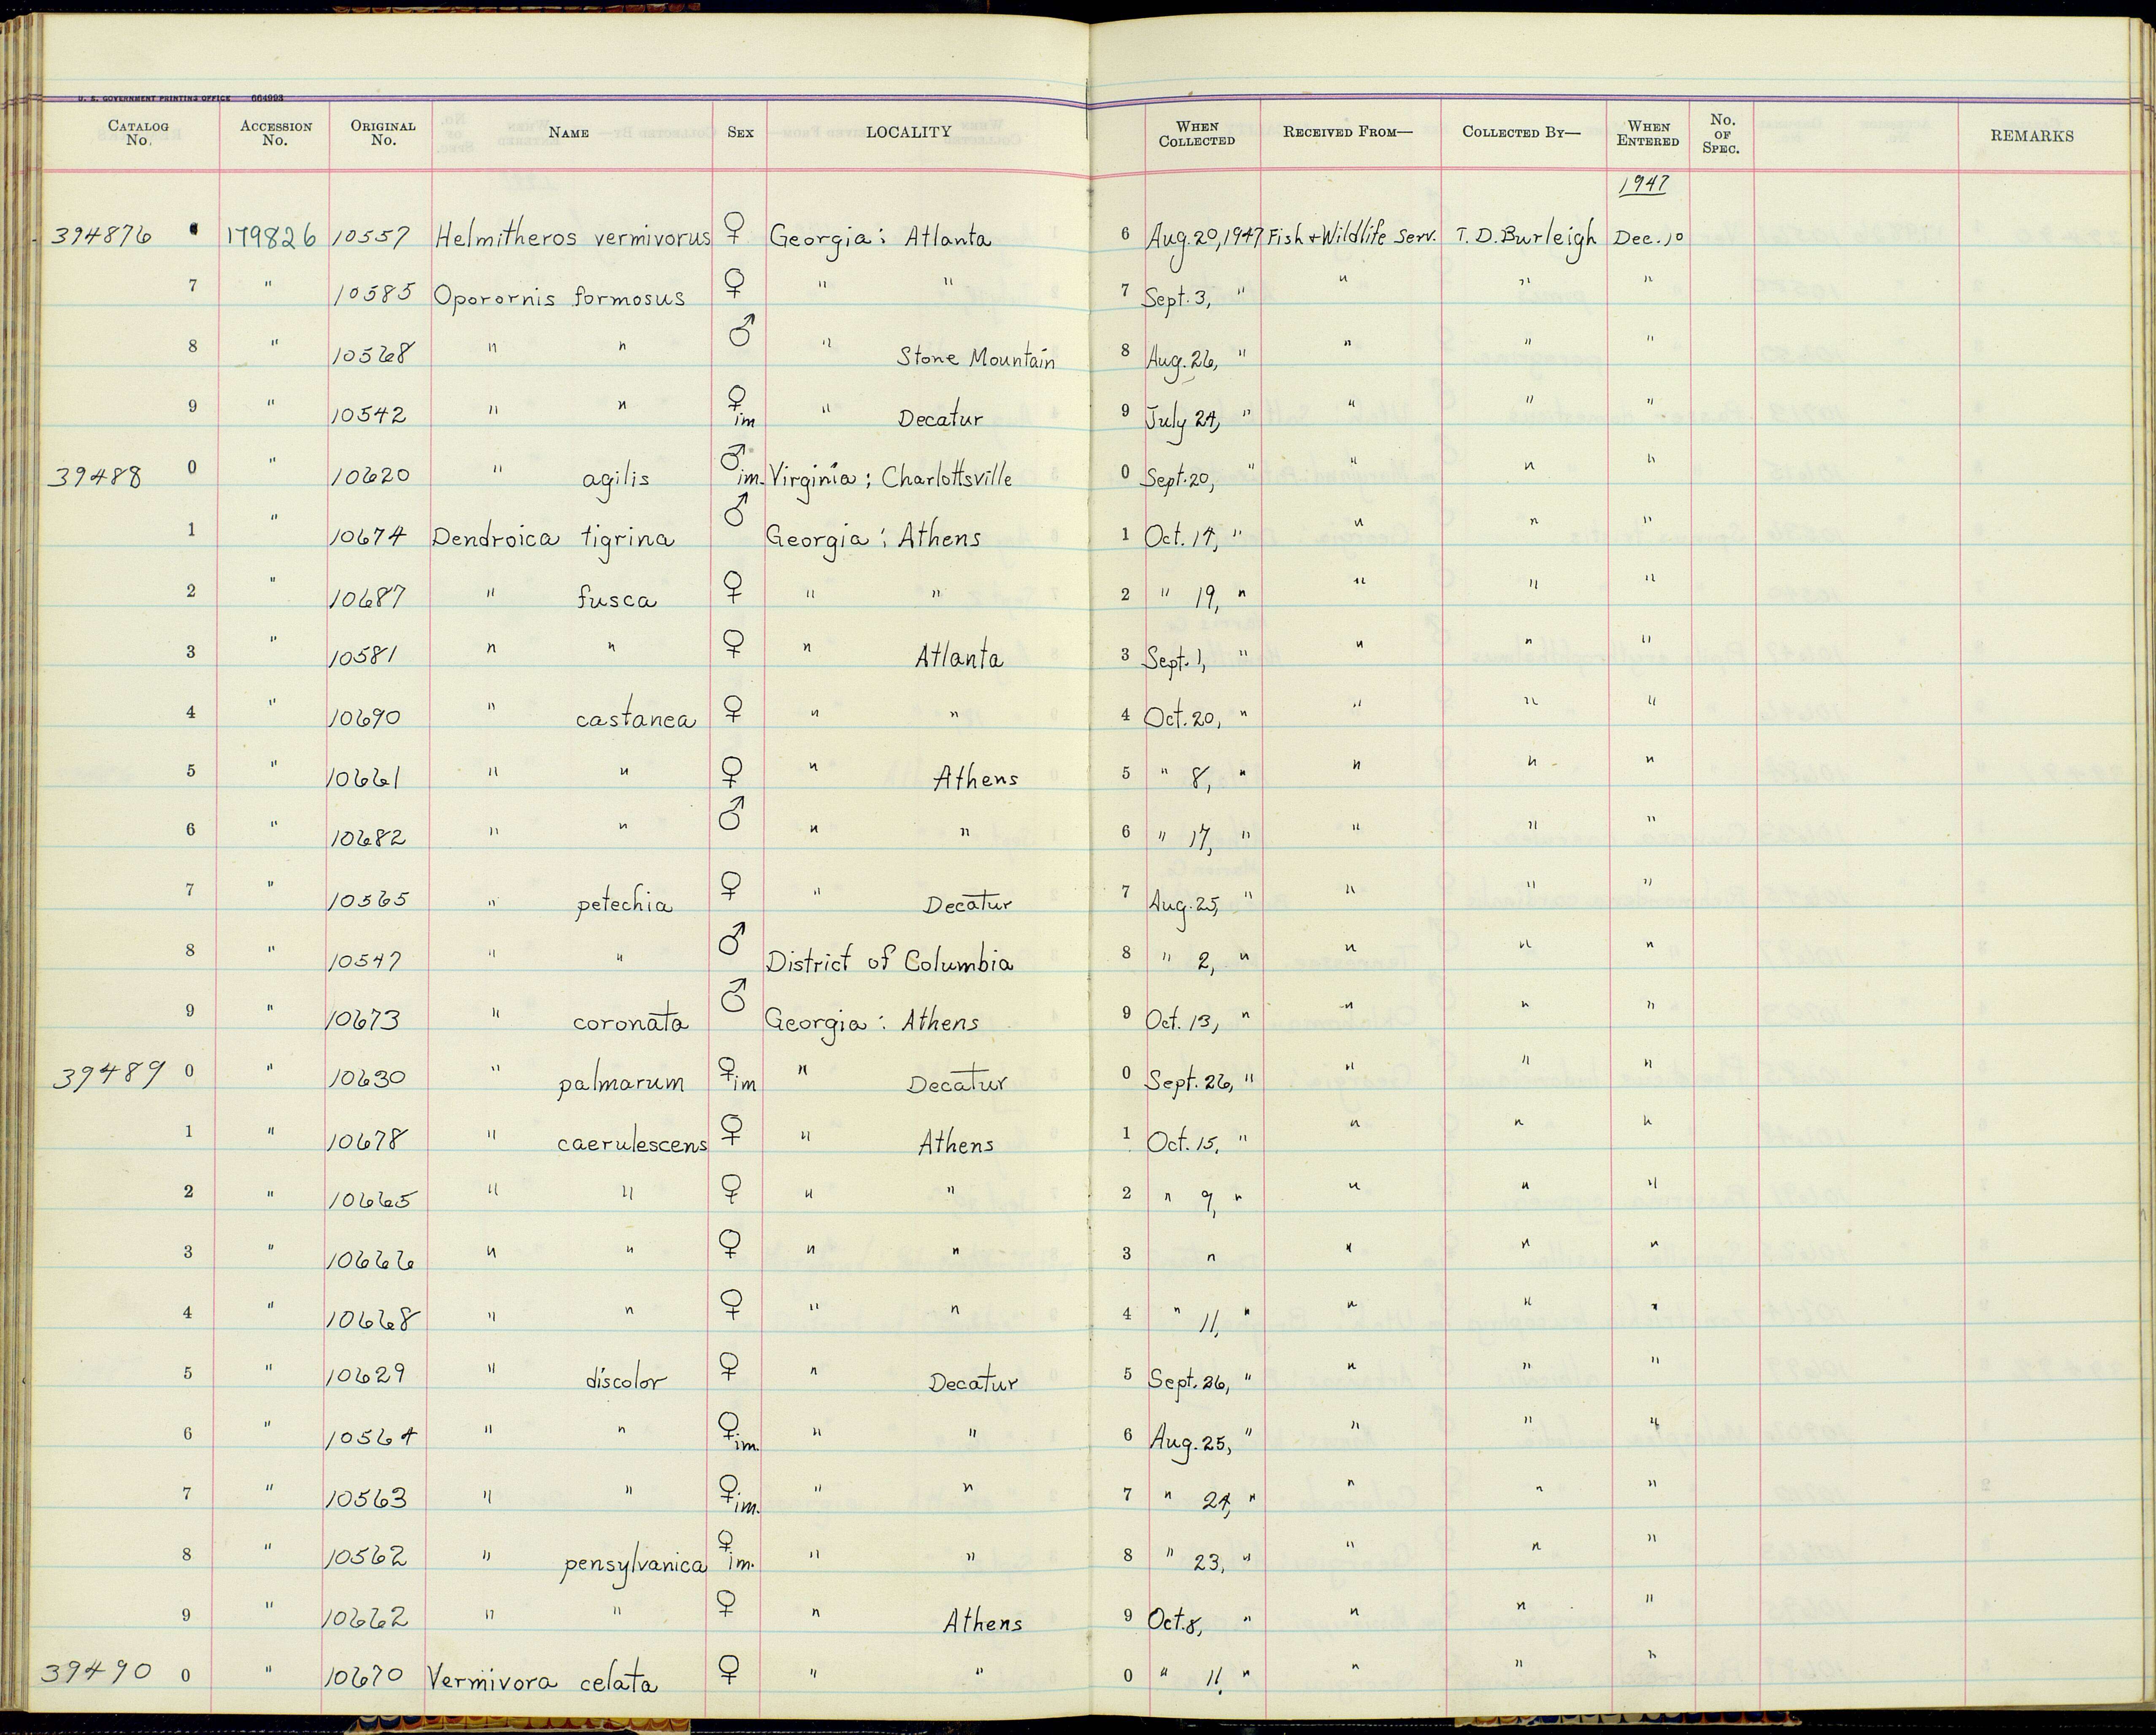 U. S. GOVERNMENT PRINTING OFFICE 664993
CATALOG No. ACCESSION No. ORIGINAL No. NAME SEX LOCALITY WHEN COLLECTED RECEIVED FROM— COLLECTED BY— WHEN ENTERED No. OF SPEC. REMARKS
1947
394876 179826 10557 Helmitheros vermivorus ♀ Georgia: Atlanta 6 Aug. 20, 1947 Fish + Wildlife Serv. T. D. Burleigh Dec. 10
7 " 10585 Oporornis formosus ♀ " " 7 Sept. 3, " " " "
8 " 10568 " " ♂ " Stone Mountain 8 Aug. 26, " " " "
9 " 10542 " " ♀ im " Decatur 9 July 24, " " " "
39488 0 " 10620 " agilis ♂ im. Virginia; Charlottsville 0 Sept. 20, " " " "
1 " 10674 Dendroica tigrina ♂ Georgia: Athens 1 Oct. 14, " " " "
2 " 10687 " fusca ♀ " " 2 " 19, " " " "
3 " 10581 " " ♀ " Atlanta 3 Sept. 1, " " " "
4 " 10690 " castanea ♀ " " 4 Oct. 20, " " " "
5 " 10661 " " ♀ " Athens 5 " 8, " " " "
6 " 10682 " " ♂ " " 6 " 17, " " " "
7 " 10565 " petechia ♀ " Decatur 7 Aug. 25, " " " "
8 " 10547 " " ♂ District of Columbia 8 " 2, " " " "
9 " 10673 " coronata ♂ Georgia: Athens 9 Oct. 13, " " " "
39489 0 " 10630 " palmarum ♀ im " Decatur 0 Sept. 26, " " " "
1 " 10678 " caerulescens ♀ " Athens 1 Oct. 15, " " " "
2 " 10665 " " ♀ " " 2 " 9, " " " "
3 " 10666 " " ♀ " " 3 " " " "
4 " 10668 " " ♀ " " 4 " 11, " " " "
5 " 10629 " discolor ♀ " Decatur 5 Sept. 26, " " " "
6 " 10564 " " ♀ im. " " 6 Aug. 25, " " " "
7 " 10563 " " ♀ im. " " 7 " 24, " " " "
8 " 10562 " pensylvanica ♀ im. " " 8 " 23, " " " "
9 " 10662 " " ♀ " Athens 9 Oct. 8, " " " "
39490 0 " 10670 Vermivora celata ♀ " " 0 " 11, " " " "